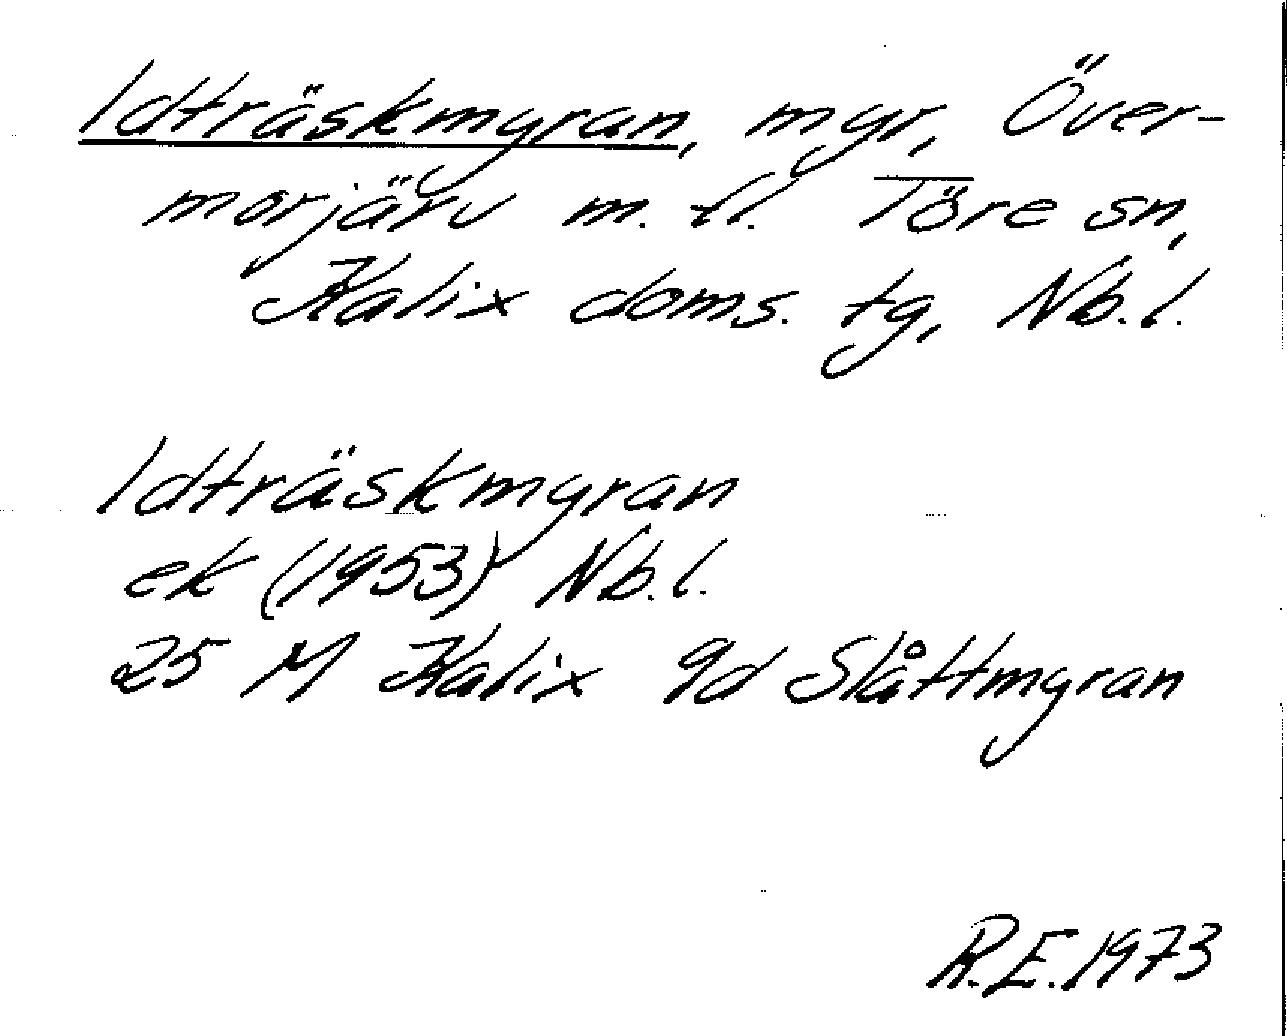 Idträskmyran, myr, Över-
morjärv m. fl. Töre sn,
Kalix doms. tg, Nb.l.
Idträskmyran
ek (1953) Nb.l.
25 M Kalix 9d Slåttmyran
R.E. 1973